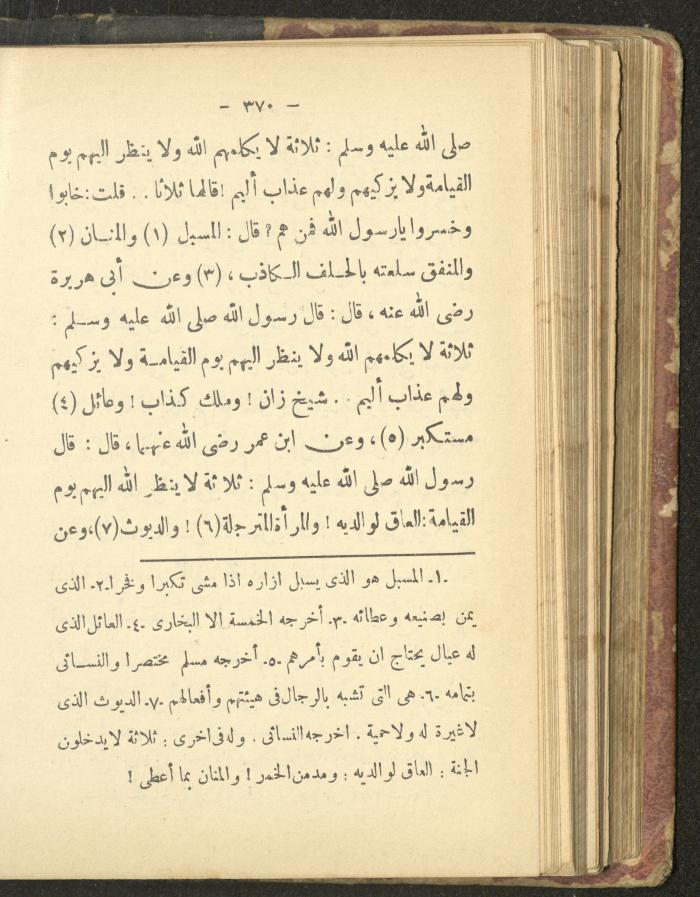 - ٣٧٠ -
صلى الله عليه وسلم : ثلاثة لا يكلمهم الله ولا ينظر اليهم يوم
القيامة ولا يزكيهم ولهم عذاب أليم ! قالها ثلاثا . . قلت : خابوا
وخسروا يارسول الله فمن هم ? قال : المسبل (١) والمنان (٢)
والمنفق سلعته بالحلف الكاذب ، (٣) وعن أبى هريرة
رضى الله عنه ، قال : قال رسول الله صلى الله عليه وسلم :
ثلاثة لا يكلمهم الله ولا ينظر اليهم يوم القيامة ولا يزكيهم
ولهم عذاب أليم . . شيخ زان ! وملك كذاب ! وعائل (٤)
مستكبر (٥) ، وعن ابن عمر رضى الله عنهما ، قال : قال
رسول الله صلى الله عليه وسلم : ثلاثة لا ينظر الله اليهم يوم
القيامة : العاق لوالديه ! والمرأة المترجلة (٦) ! والديوث (٧) ، وعن
١- المسبل هو الذى يسبل ازاره اذا مشى تكبرا وفخرا ٢- الذى
يمن بصنيعه وعطائه ٣- أخرجه الخمسة الا البخارى ٤- العائل الذى
له عيال يحتاج ان يقوم بأمرهم ٥- أخرجه مسلم مختصرا والنسائى
بتمامه ٦- هى التى تشبه بالرجال فى هيئتهم وأفعالهم ٧- الديوث الذى
لاغيرة له ولاحمية . اخرجه النسائى . وله فى اخرى : ثلاثة لايدخلون
الجنة : العاق لوالديه : ومدمن الخمر ! والمنان بما أعطى !